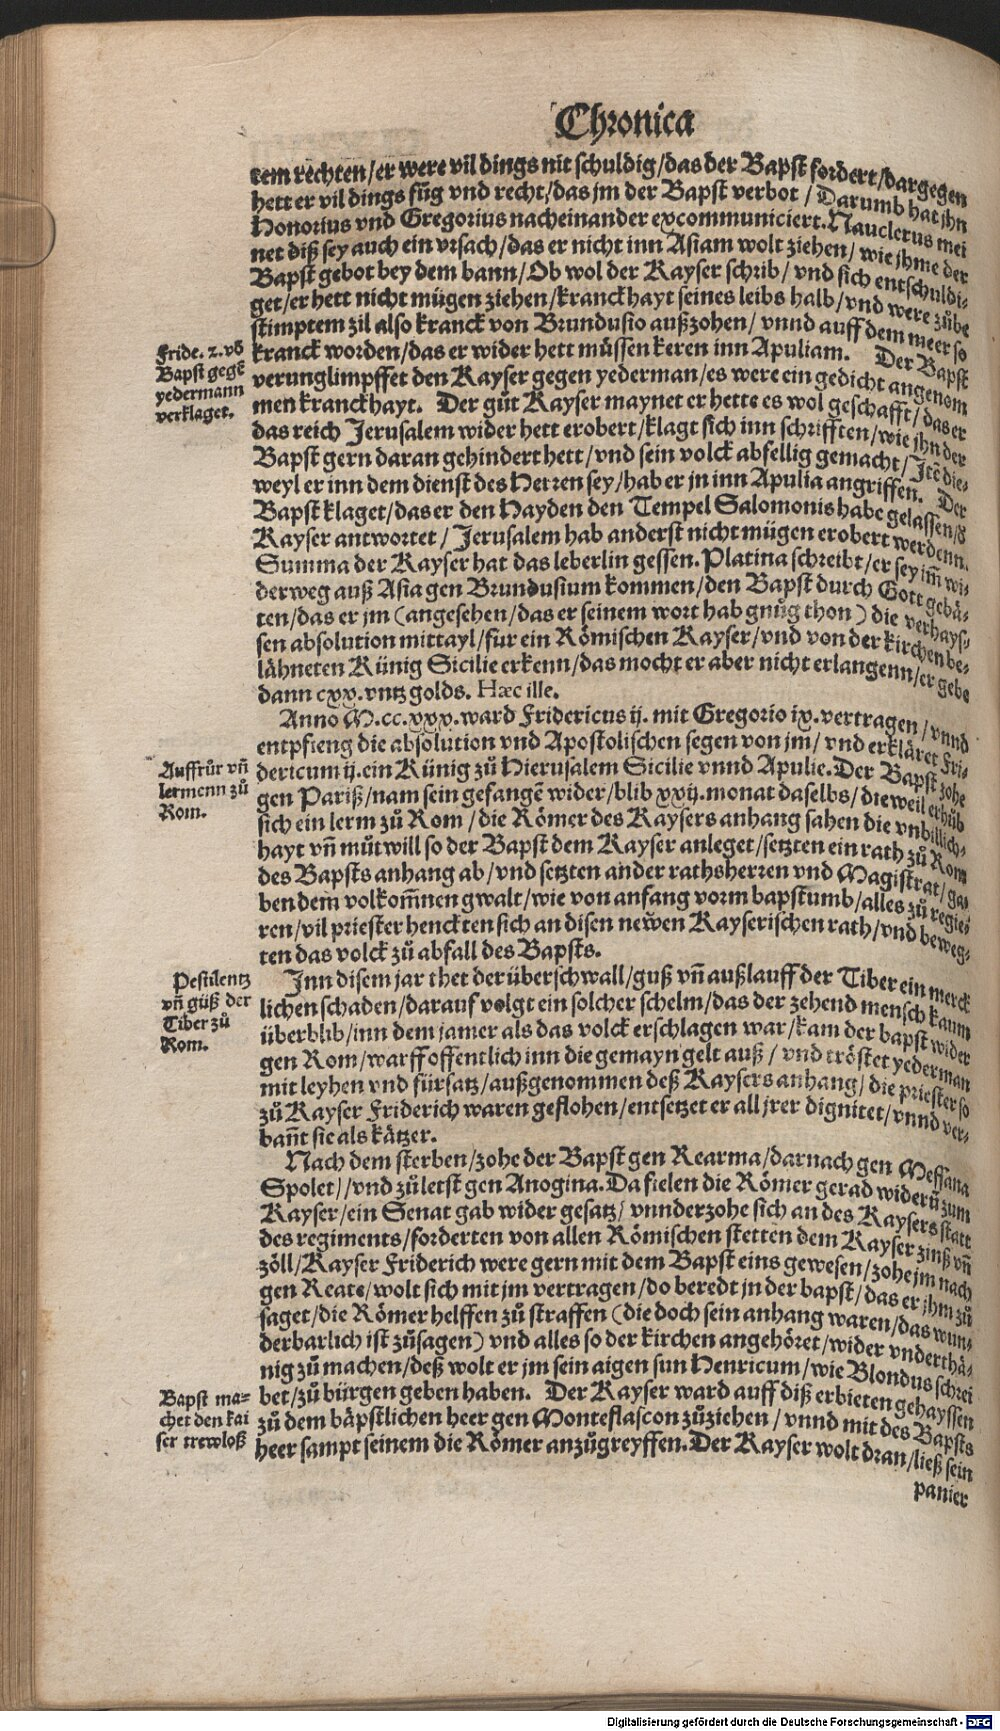 Chronica
tem rechten/er were vil dings nit schuldig/das der Bapst fordert/dargegen
hett er vil dings fůg vnd recht/das jm der Bapst verbot / Darumb hat jhn
Honorius vnd Gregorius nacheinander excommuniciert. Nauclerus mei
net diß sey auch ein vrsach/das er nicht inn Asiam wolt ziehen/ wie jhme der
Bapst gebot bey dem bann/Ob wol der Kayser schrib/ vnd sich entschuldi-
get/er hett nicht mügen ziehen/kranckhayt seines leibs halb/vnd were zůbe
stimptem zil also kranck von Brundusio außzohen/ vnnd auff dem meer so
Fride. 2. võ
Bapst gegẽ
yedermann
verklaget.
kranck worden/das er wider hett müssen keren inn Apuliam. Der Bapst
verunglimpffet den Kayser gegen yederman/es were ein gedicht angenom
men kranckhayt. Der gůt Kayser maynet er hette es wol geschafft/das er
das reich Jerusalem wider hett erobert/klagt sich inn schrifften/wie jhn der
Bapst gern daran gehindert hett/vnd sein volck abfellig gemacht/Jtẽ die-
weyl er inn dem dienst des Herren sey/hab er jn inn Apulia angriffen. Der
Bapst klaget/das er den Hayden den Tempel Salomonis habe gelassen/d
Kayser antwortet / Jerusalem hab anderst nicht mügen erobert werdenn.
Summa der Kayser hat das leberlin gessen. Platina schreibt/er sey im̃ wi-
derweg auß Asia gen Brundusium kommen/den Bapst durch Gott gebä-
ten/das er jm (angesehen/das er seinem wort hab gnůg thon) die verhays-
sen absolution mittayl/fur ein Römischen Kayser/vnd von der kirchen be-
lähneten Künig Sicilie erkenn/das mocht er aber nicht erlangenn/er gebe
dann cxx. vntz golds. Hæc ille.
Anno M.cc.xxx. ward Fridericus ij. mit Gregorio ix. vertragen / vnnd
entpfieng die absolution vnd Apostolischen segen von jm/ vnd erkläret Fri-
Auffrůr vñ
lermenn zů
Rom.
dericum ij. ein Künig zů Hierusalem Sicilie vnnd Apulie. Der Bapst zohe
gen Pariß/nam sein gefangẽ wider/blib xxij. monat daselbs/ dieweil erhůb
sich ein lerm zů Rom / die Römer des Kaysers anhang sahen die vnbillich-
hayt vñ můtwill so der Bapst dem Kayser anleget/setzten ein rath zů Rom
des Bapsts anhang ab/vnd setzten ander rathsherren vnd Magistrat/ga
ben dem volkom̃nen gwalt/wie von anfang vorm bapstumb/alles zů regie-
ren/vil priester henckten sich an disen newen Kayserischen rath/vnd beweg-
ten das volck zů abfall des Bapsts.
Pestilentz
vñ güß der
Tiber zů
Rom.
Inn disem jar thet der überschwall/guß vñ außlauff der Tiber ein merck
lichen schaden/darauf volgt ein solcher schelm/das der zehend mensch kaum
überblib/inn dem jamer als das volck erschlagen war/kam der bapst wider
gen Rom/warff offentlich inn die gemayn gelt auß / vnd tröstet yederman
mit leyhen vnd fürsatz/außgenommen deß Kaysers anhang/ die priester so
zů Kayser Friderich waren geflohen/entsetzet er all jrer dignitet/vnnd ver-
bañt sie als kätzer.
Nach dem sterben/zohe der Bapst gen Rearma/darnach gen Messana
Spolet//vnd zů letst gen Anogina. Da fielen die Römer gerad widerũ zum
Kayser/ein Senat gab wider gesatz/ vnnderzohe sich an des Kaysers statt
des regiments/forderten von allen Römischen stetten dem Kayser zinß vñ
zöll/Kayser Friderich were gern mit dem Bapst eins gewesen/zohe jm nach
gen Reate/wolt sich mit jm vertragen/do beredt jn der bapst/das er jhm zů
saget/die Römer helffen zů straffen (die doch sein anhang waren/das wun-
derbarlich ist zůsagen) vnd alles so der kirchen angehöret/wider vnderthä-
nig zů machen/deß wolt er jm sein aigen sun Henricum/wie Blondus schrei
Bapst ma-
chet den kai
ser trewloß
bet/zů bürgen geben haben. Der Kayser ward auff diß erbieten gehayssen
zů dem bäpstlichen heer gen Monteflascon zůziehen / vnnd mit des Bapsts
heer sampt seinem die Römer anzůgreyffen. Der Kayser wolt dran/ließ sein
panier
Digitalisierung gefördert durch die Deutsche Forschungsgemeinschaft - DFG